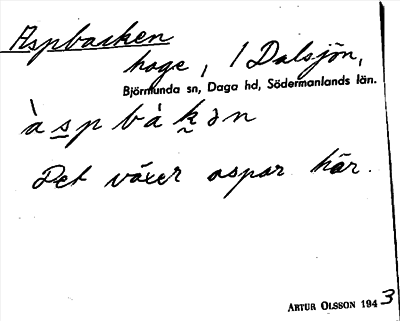 Aspbacken
hage, 1 Dalsjön,
Björnlunda sn, Daga hd, Södermanlands län.
àspbàkən
Det växer aspar här.
ARTUR OLSSON 1943